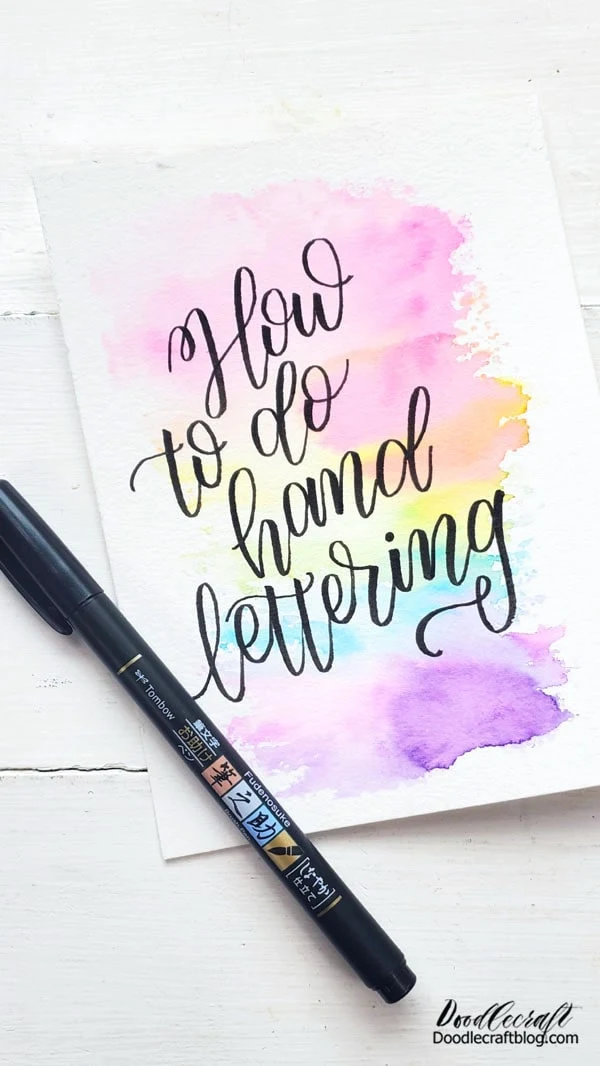 How
to do
hand
lettering
Tombow
筆文字
お助け
ペン
筆之助
Fudenosuke
しなやか
仕立て
Doodlecraft
Doodlecraftblog.com